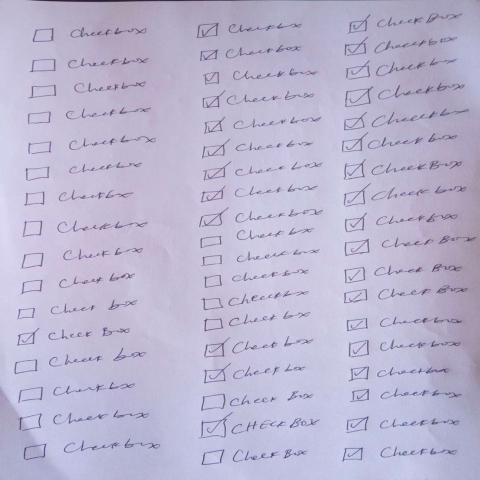 Checkbox
Checkbox
Checkbox
Checkbox
Checkbox
Checkbox
Checkbox
Checkbox
Check box
Check box
Check box
Check Box
Check box
Checkbox
Checkbox
Checkbox
Check box
Checkbox
Checkbox
Checkbox
Checkbox
Check box
Check box
Check box
Checkbox
Check box
Check box
Check box
Checkbox
Check box
Check box
Check box
Check Box
CHECKBOX
Check Box
Check Box
Checkbox
Checkbox
Checkbox
Checkbox
Checkbox
CheckBox
Check box
Checkbox
Check Box
Check Box
Check Box
Checkbox
Checkbox
Checkbox
Checkbox
Checkbox
Checkbox